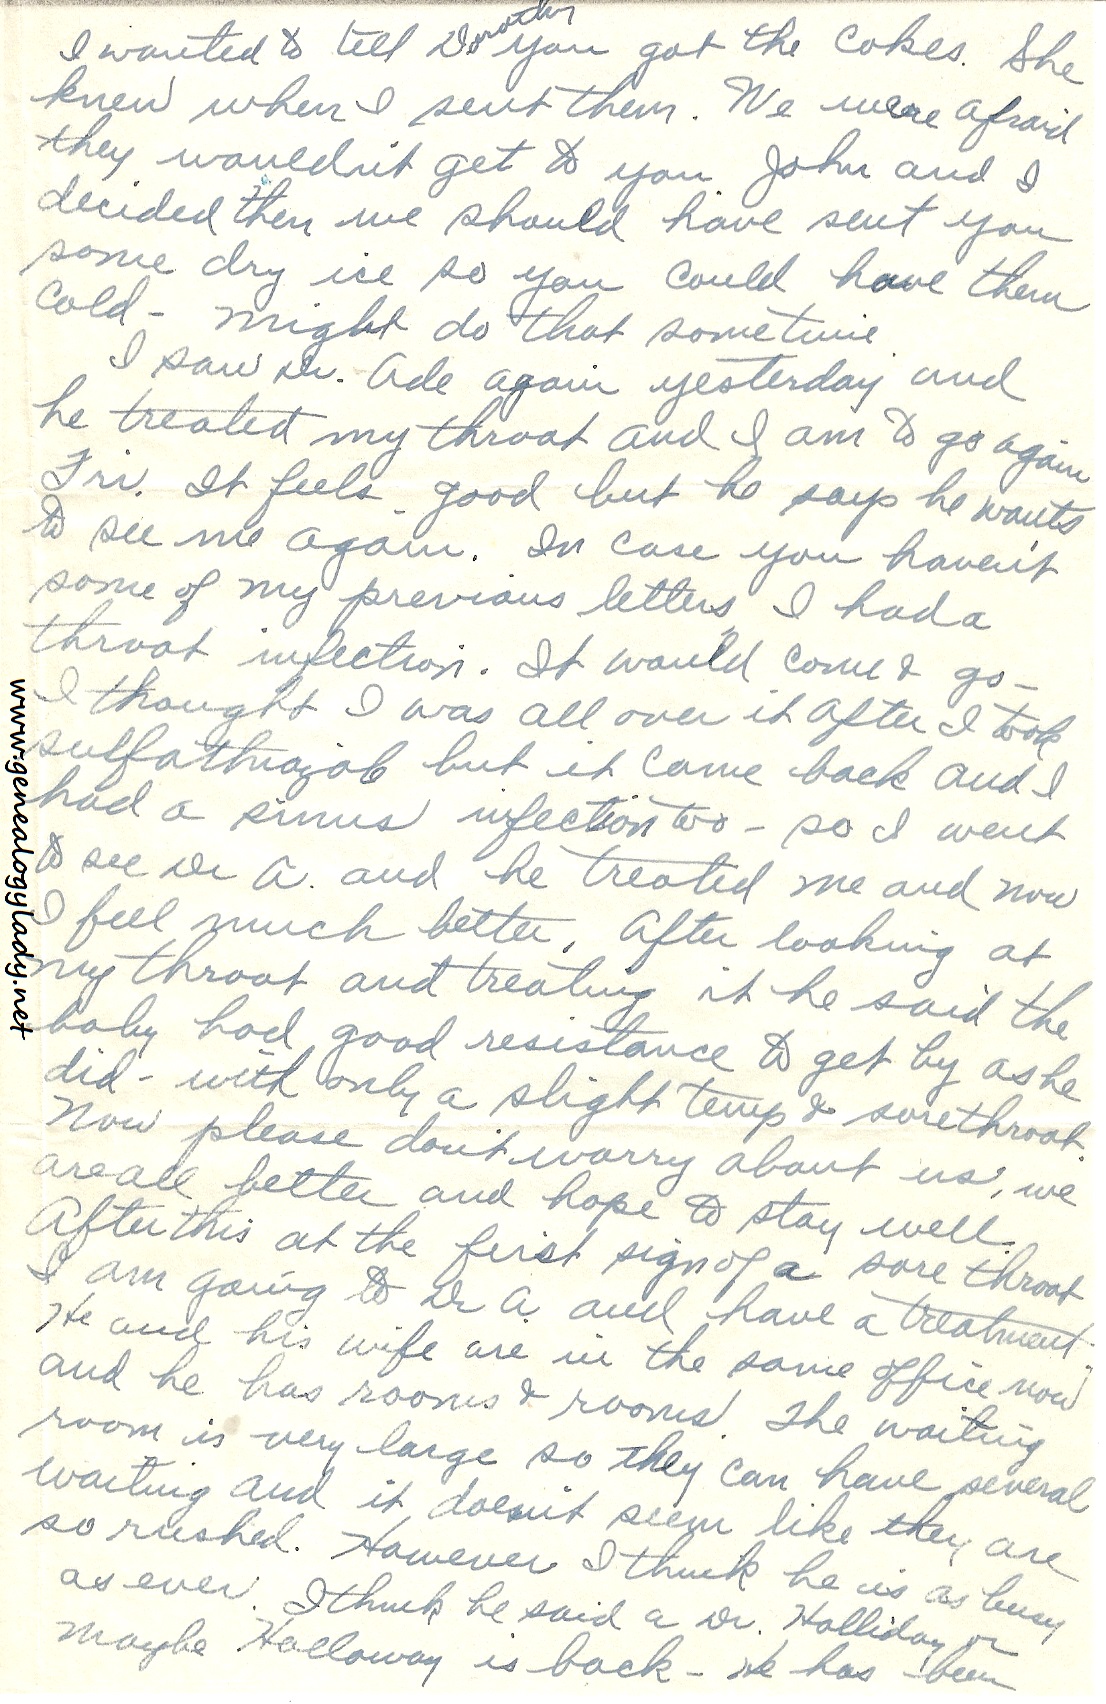 I wanted to tell Dorothy you got the cokes. She
knew when I sent them. We were afraid
they wouldn't get to you. John and I
decided then we should have sent you
some dry ice so you could have them
cold - Might do that sometime
I saw Dr. Ade again yesterday and
he treated my throat and I am to go again
Fri. It feels good but he says he wants
to see me again. In case you haven't
some of my previous letters, I had a
throat infection. It would come & go -
I thought I was all over it after I took
sulfathiazole but it came back and I
had a sinus infection too - so I went
to see Dr A. and he treated me and now
I feel much better. After looking at
my throat and treating it he said the
baby had good resistance to get by as he
did - with only a slight temp & sore throat.
Now please don't worry about us, we
are all better and hope to stay well.
After this at the first sign of a sore throat
I am going to Dr A. and have a treatment.
He and his wife are in the same office now
and he has rooms & rooms. The waiting
room is very large so they can have several
waiting and it doesn't seem like they are
so rushed. However I think he is as busy
as ever. I think he said a Dr. Holliday or
maybe Holloway is back - He has been
www.genealogylady.net